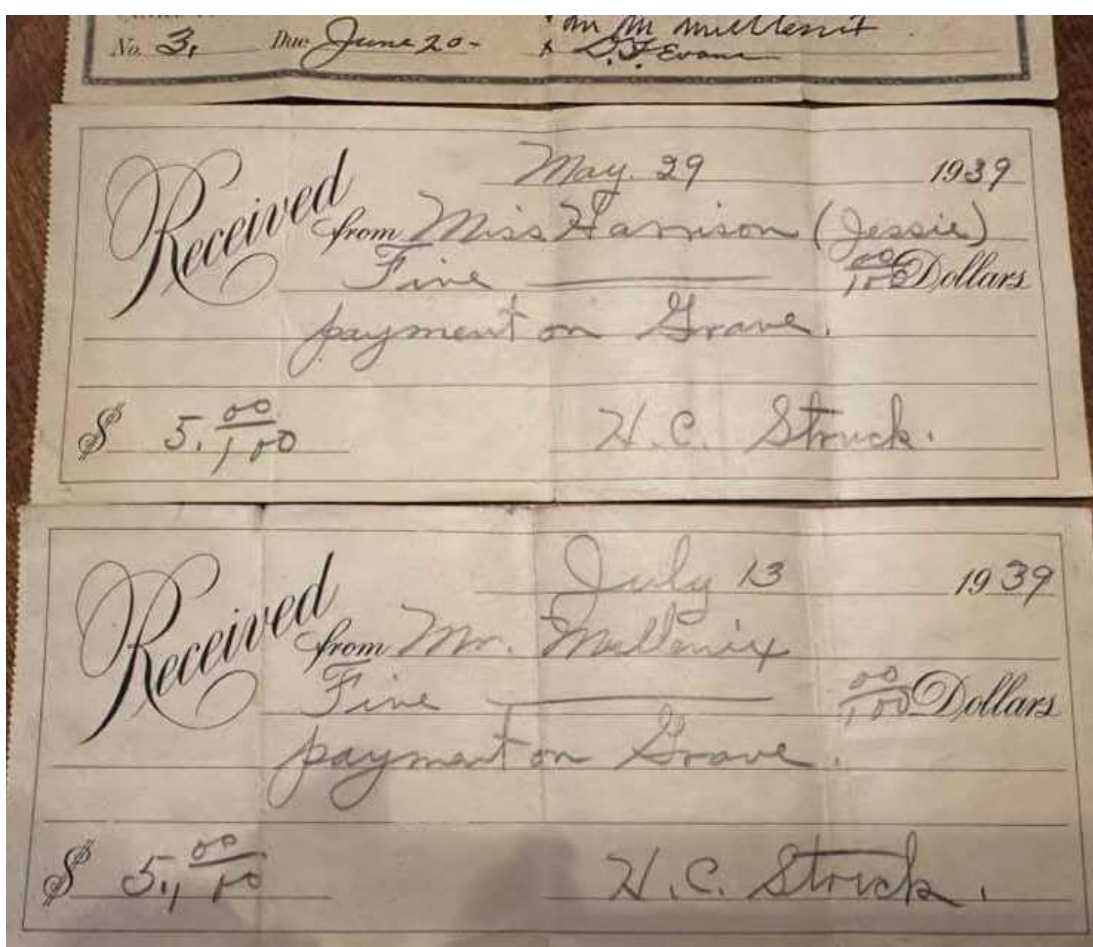 m m mullenit
No. 3, Due June 20- & D. F. Evans
May. 29 1939
Received from Miss Harrison (Jessie)
Five 00/100 Dollars
payment on Grave.
$ 5. 00/100 H. C. Struck.
July 13 1939
Received from Mr. Mullenix
Five 00/100 Dollars
payment on Grave.
$ 5, 00/100 H. C. Struck.